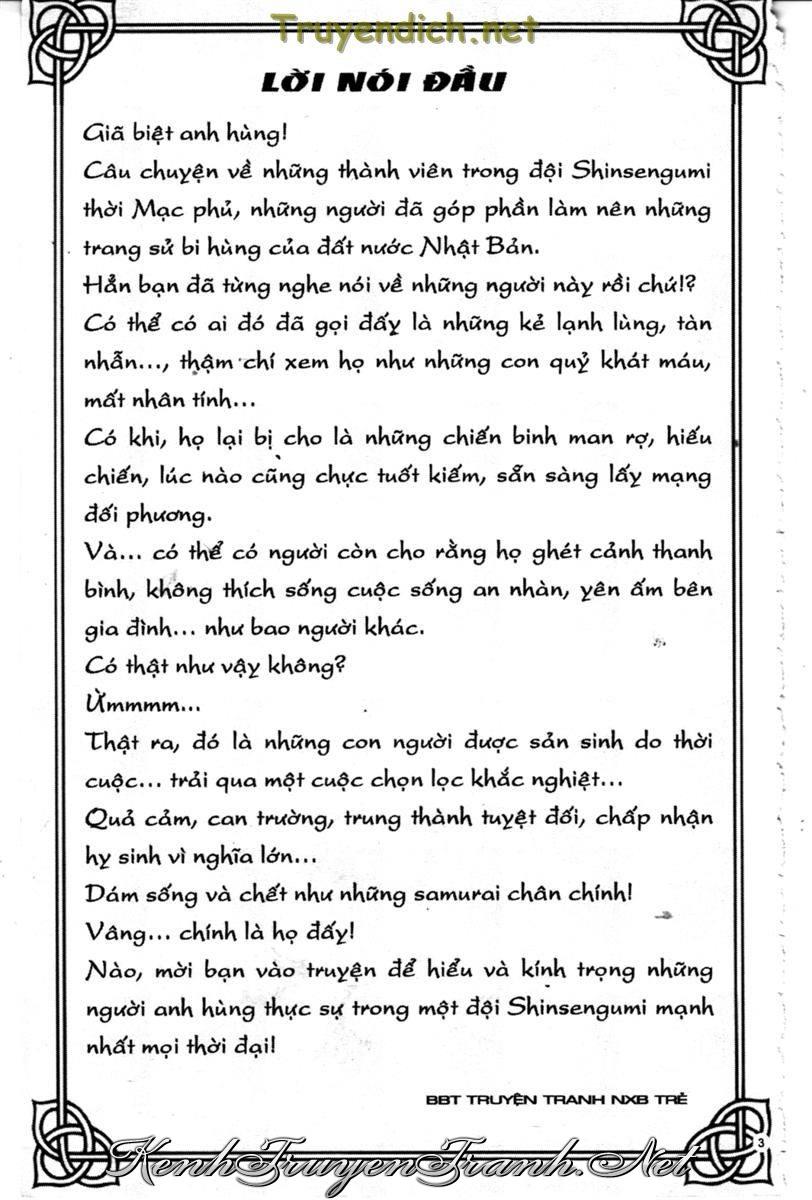 Truyendich.net
LỜI NÓI ĐẦU
Giã biệt anh hùng!
Câu chuyện về những thành viên trong đội Shinsengumi
thời Mạc phủ, những người đã góp phần làm nên những
trang sử bi hùng của đất nước Nhật Bản.
Hẳn bạn đã từng nghe nói về những người này rồi chứ!?
Có thể có ai đó đã gọi đấy là những kẻ lạnh lùng, tàn
nhẫn..., thậm chí xem họ như những con quỷ khát máu,
mất nhân tính...
Có khi, họ lại bị cho là những chiến binh man rợ, hiếu
chiến, lúc nào cũng chực tuốt kiếm, sẵn sàng lấy mạng
đối phương.
Và... có thể có người còn cho rằng họ ghét cảnh thanh
bình, không thích sống cuộc sống an nhàn, yên ấm bên
gia đình... như bao người khác.
Có thật như vậy không?
Ừmmmm...
Thật ra, đó là những con người được sản sinh do thời
cuộc... trải qua một cuộc chọn lọc khắc nghiệt...
Quả cảm, can trường, trung thành tuyệt đối, chấp nhận
hy sinh vì nghĩa lớn...
Dám sống và chết như những samurai chân chính!
Vâng... chính là họ đấy!
Nào, mời bạn vào truyện để hiểu và kính trọng những
người anh hùng thực sự trong một đội Shinsengumi mạnh
nhất mọi thời đại!
BBT TRUYỆN TRANH NXB TRẺ
3
KenhTruyenTranh.Net